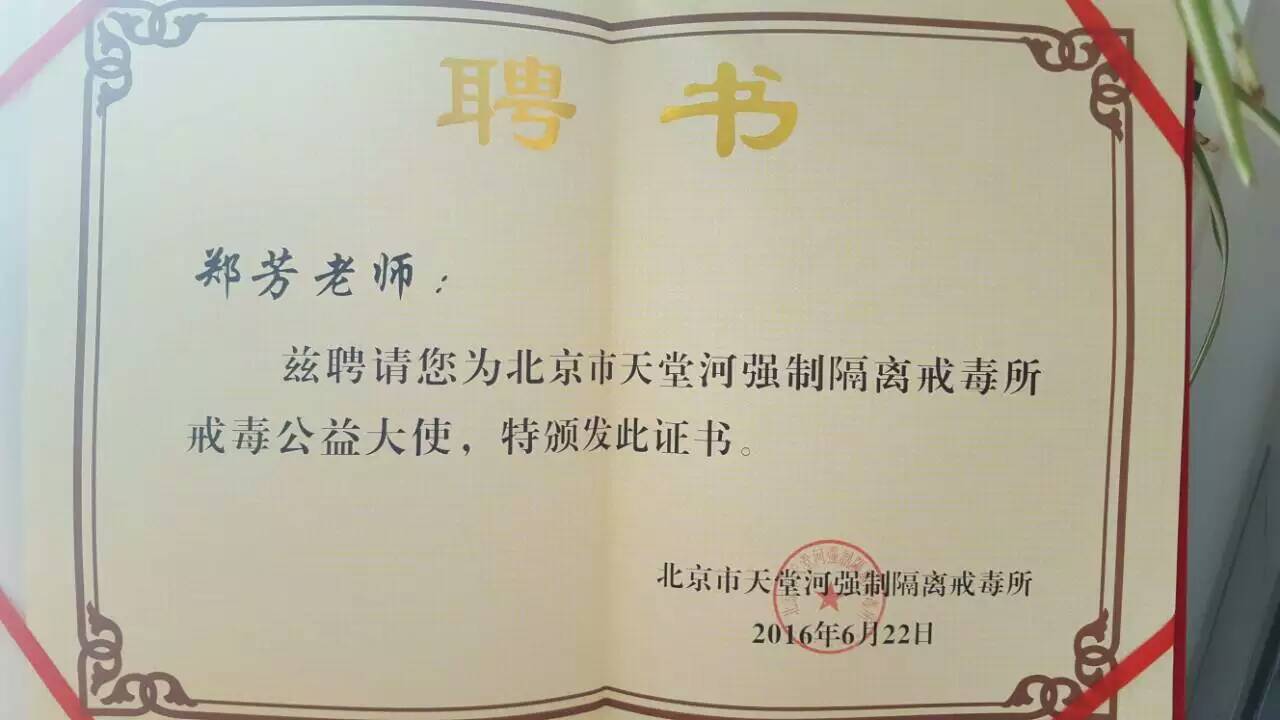 聘书
郑芳老师：
兹聘请您为北京市天堂河强制隔离戒毒所
戒毒公益大使，特颁发此证书。
北京市天堂河强制隔离戒毒所
2016年6月22日